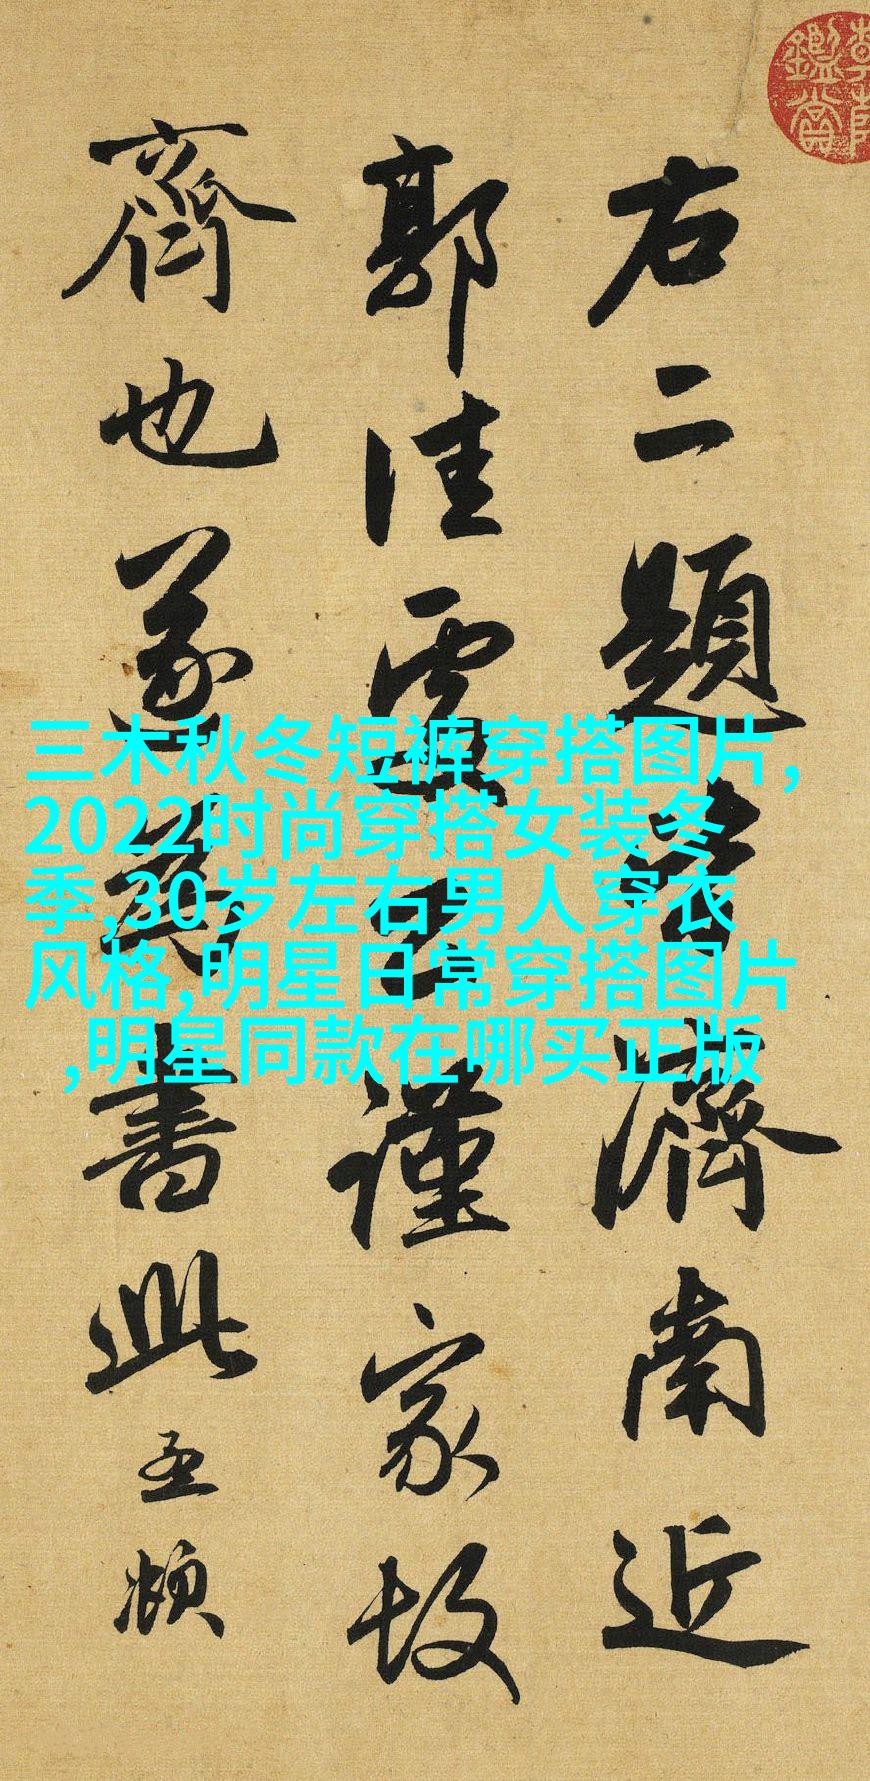 右二題皆濟南近
郭佳處公謹家故
齊也遂為書此孟頫
三木秋冬短裤穿搭图片,
2022时尚穿搭女装冬
季,30岁左右男人穿衣
风格,明星日常穿搭图片
,明星同款在哪买正版